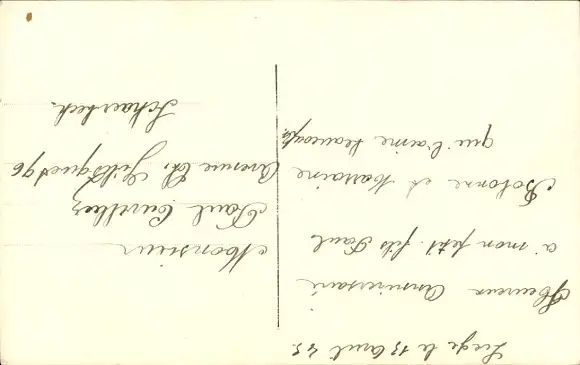 Liege le 13 Avril 45
Heureux Anniversaire
a mon petit fils Paul
Bobonne et Marraine
qui l'aime beaucoup.
Monsieur
Paul Cuvellier
Avenue Ch. Gilisquet 96
Schaerbeek.